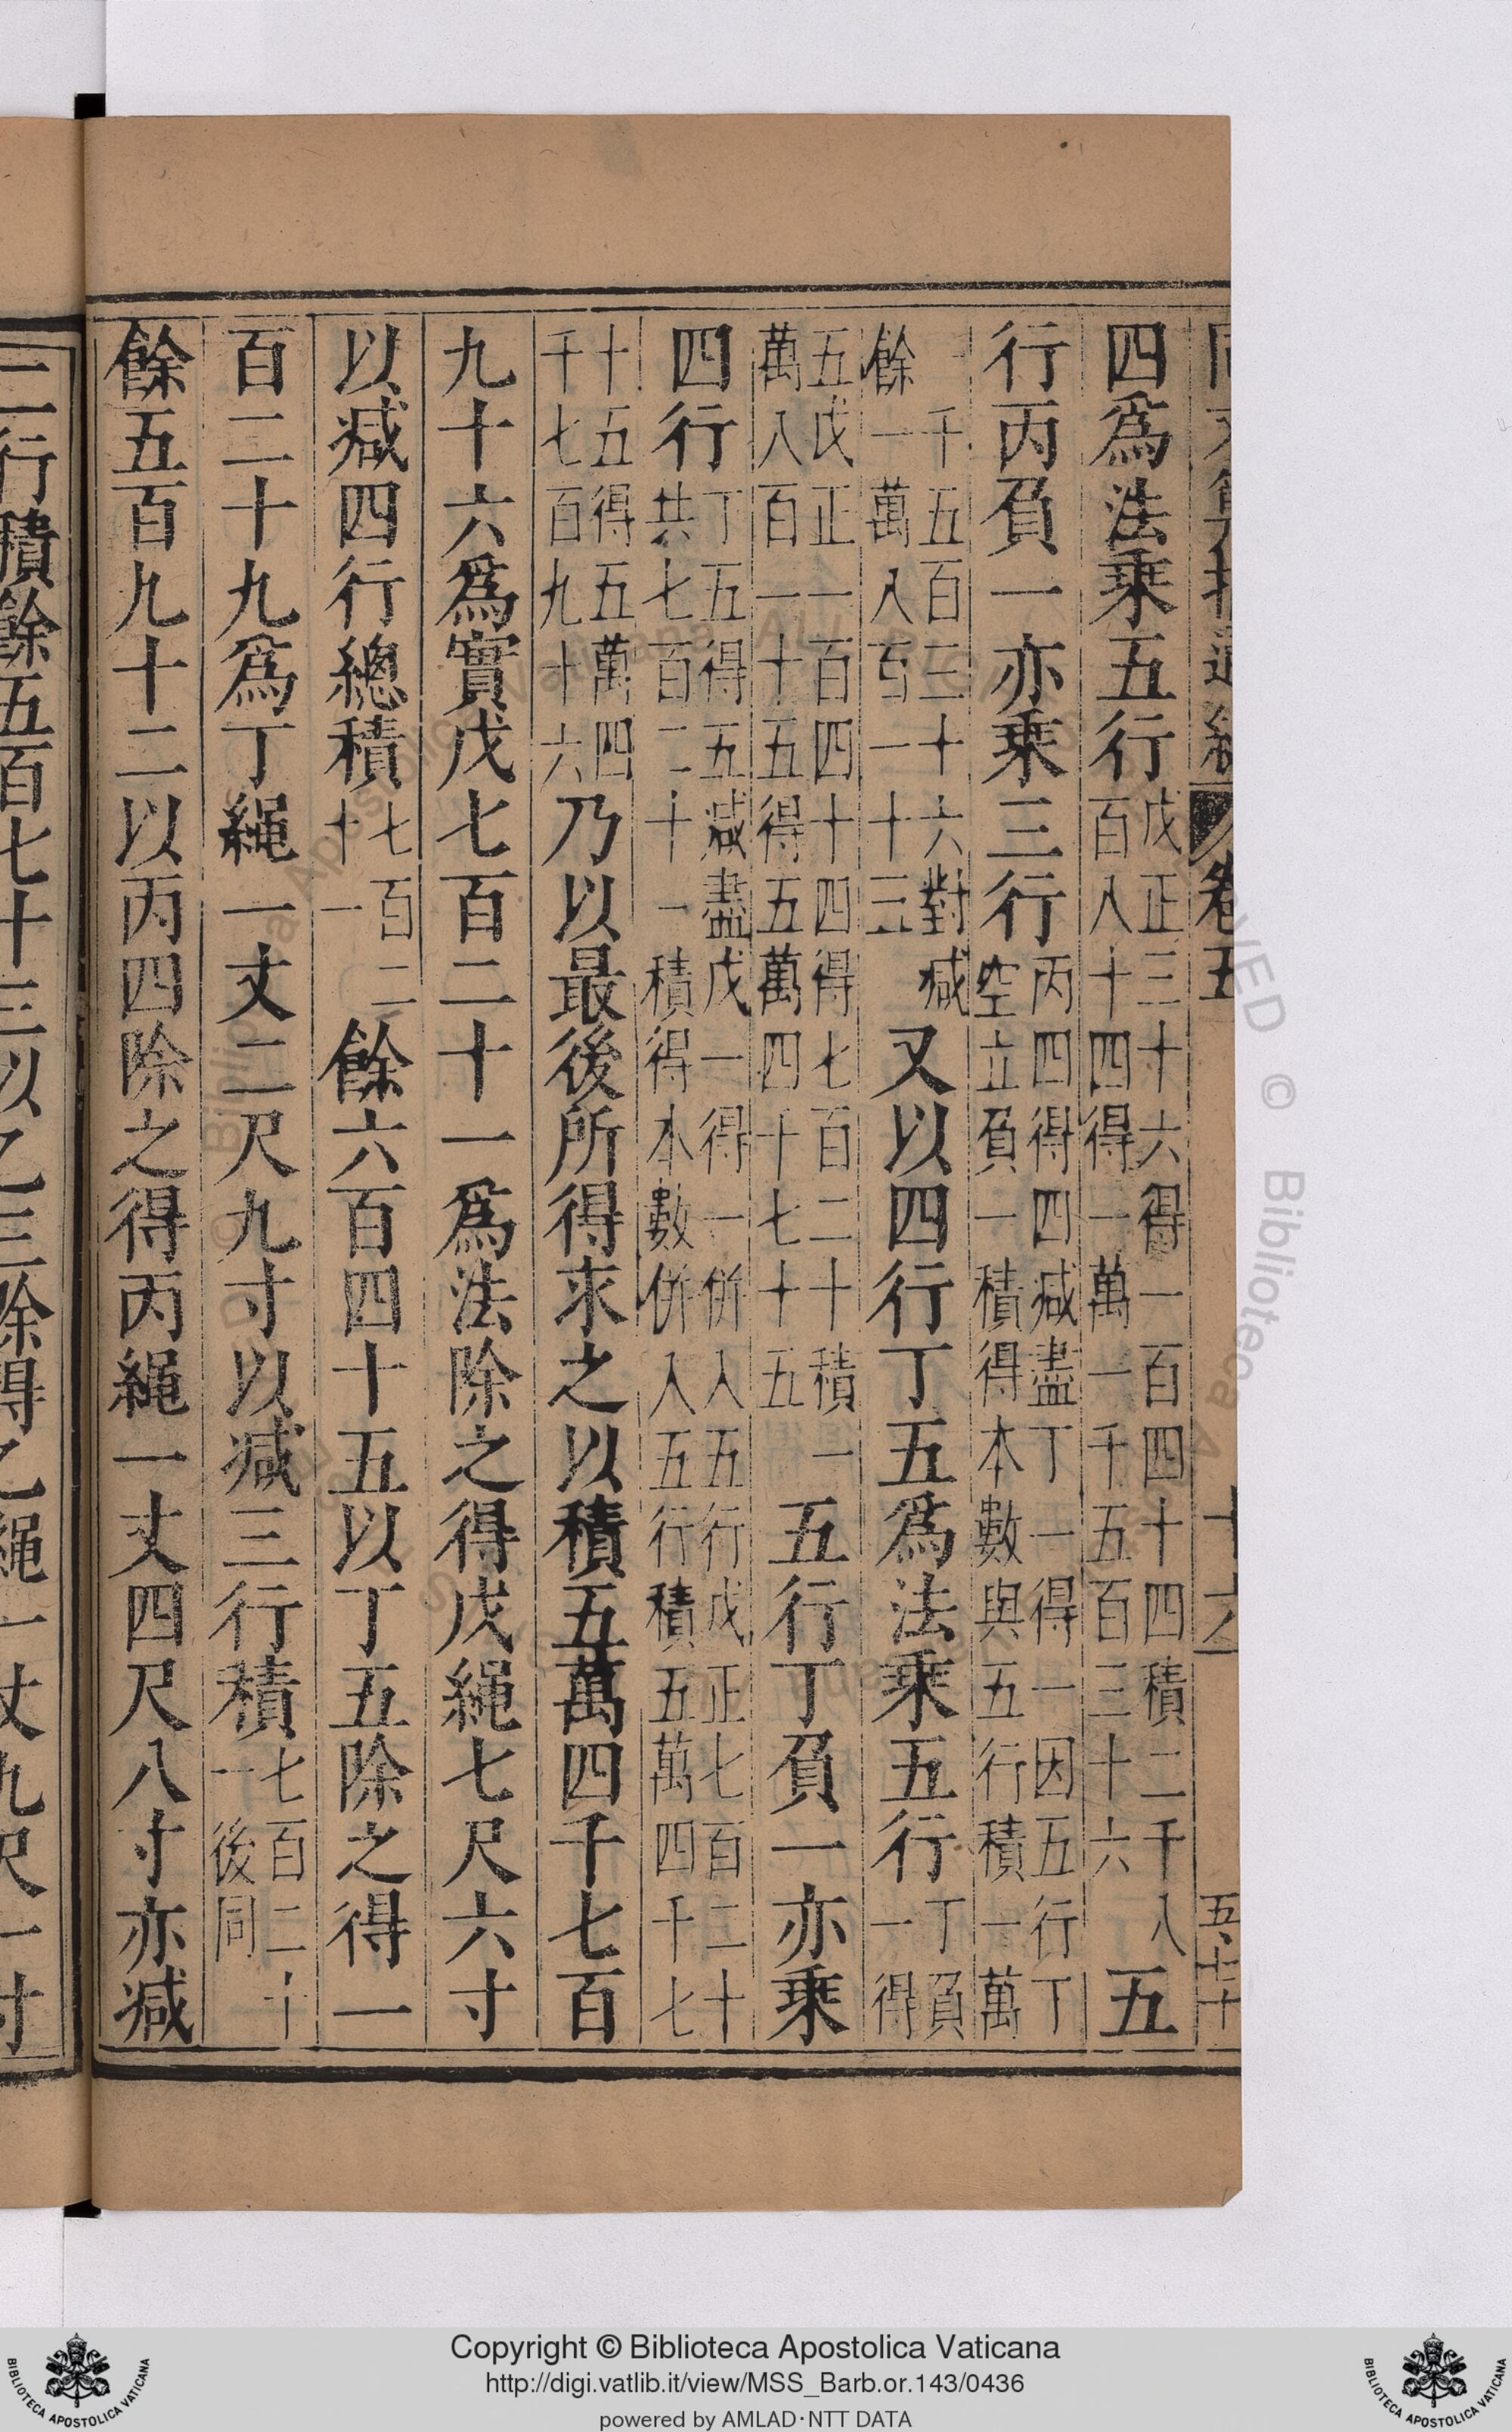 卷五
四爲法乘五行戊正三十六得一百四十四積二千八百八十四得一萬一千五百三十六五
行丙負一亦乘三行丙四得四減盡丁一得一因五行丁空立負一積得本數與五行積一萬
千五百三十六對減餘一萬八百一十三又以四行丁五爲法乘五行丁負一得
五戊正一百四十四得七百二十積一萬八百一十五得五萬四千七十五五行丁負一亦乘
四行丁五得五減盡戊一得一併入五行戊正七百二十共七百二十一積得本數併入五行積五萬四千七
十五得五萬四千七百九十六乃以最後所得求之以積五萬四千七百
九十六爲實戊七百二十一爲法除之得戊繩七尺六寸
以減四行總積七百二十一餘六百四十五以丁五除之得一
百二十九爲丁繩一丈二尺九寸以減三行積七百二十一後同
餘五百九十二以丙四除之得丙繩一丈四尺八寸亦減
二行積餘五百七十三以乙三除得乙繩一丈九尺一寸
Copyright © Biblioteca Apostolica Vaticana
http://digi.vatlib.it/view/MSS_Barb.or.143/0436
powered by AMLAD·NTT DATA
BIBLIOTECA APOSTOLICA VATICANA
BIBLIOTECA APOSTOLICA VATICANA